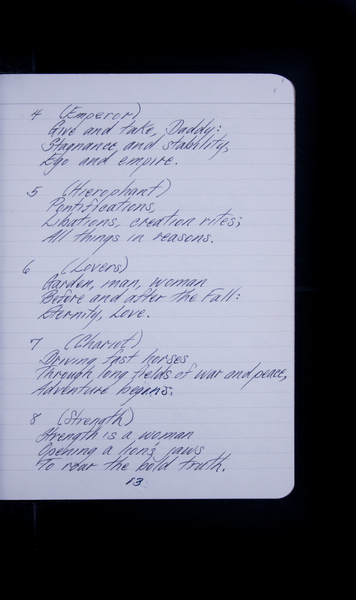 4 (Emperor)
Give and take, Daddy:
Stagnance and stability,
Ego and empire.
5 (Hierophant)
Pontifications,
Libations, creation rites;
All things in reasons.
6 (Lovers)
Garden, man, woman
Before and after the Fall:
Eternity, Love.
7 (Chariot)
Driving fast horses
Through long fields of war and peace,
Adventure begins.
8 (Strength)
Strength is a woman
Opening a lion's jaws
To roar the bold truth.
13